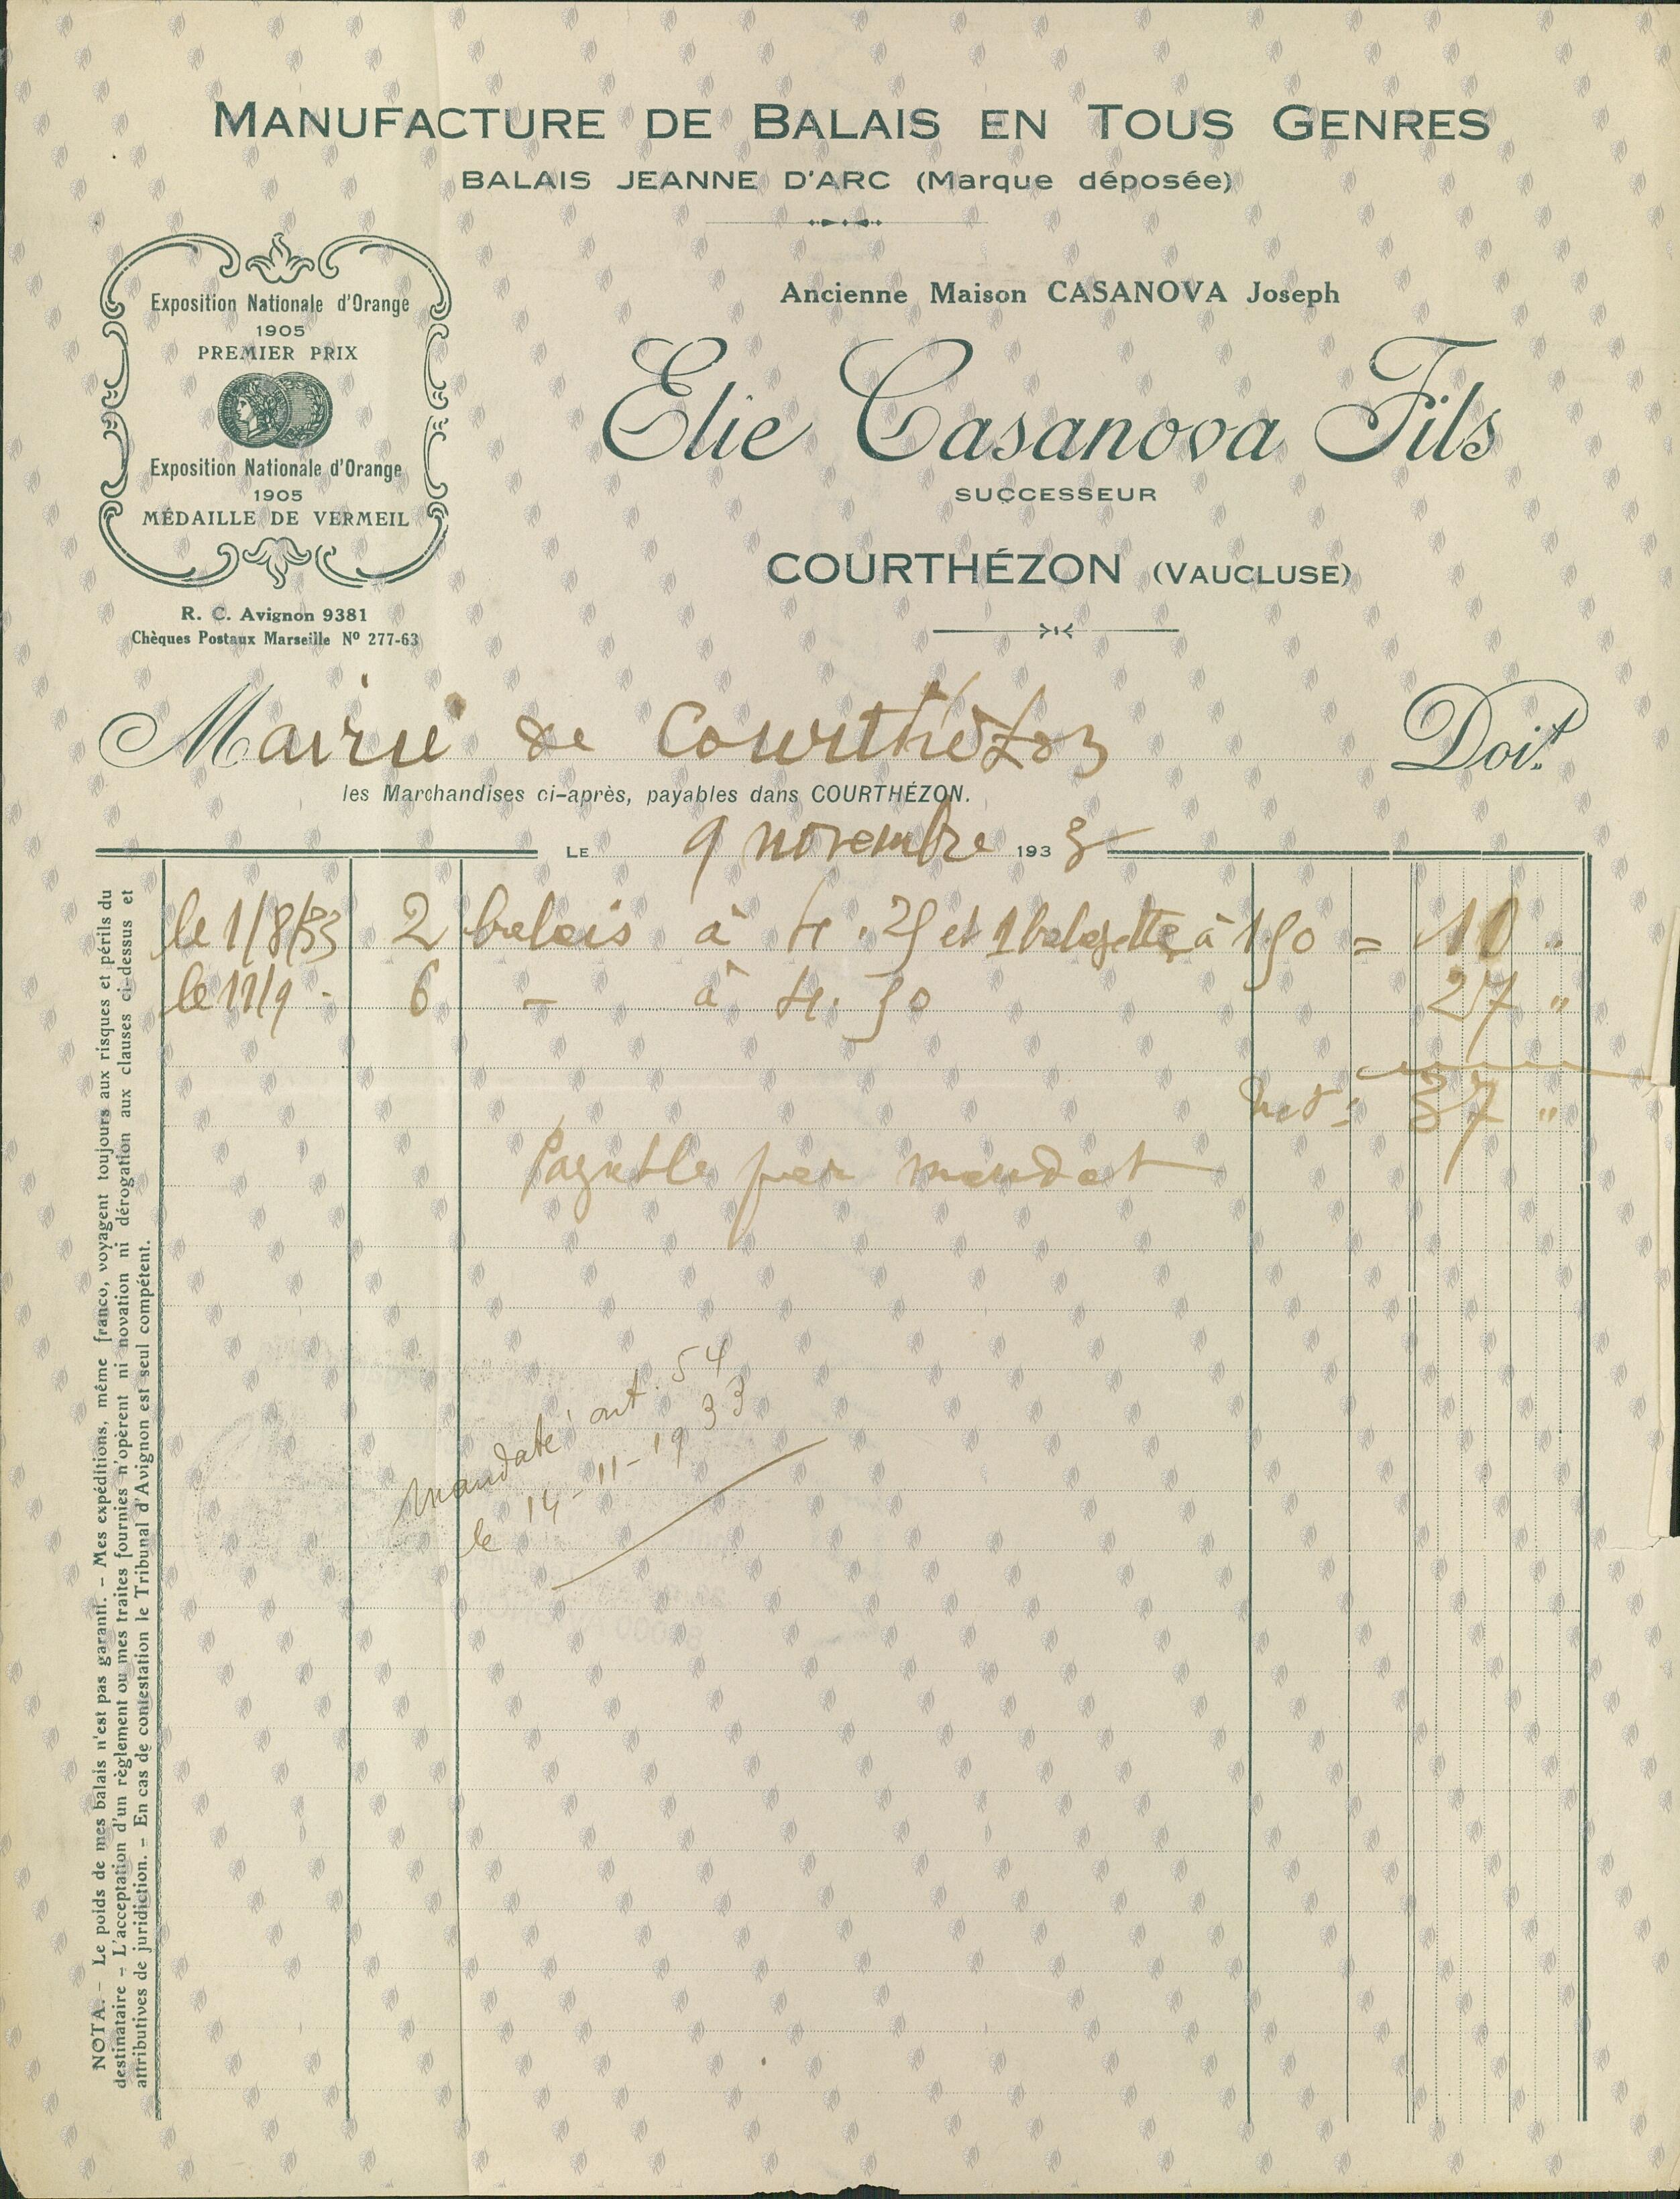 MANUFACTURE DE BALAIS EN TOUS GENRES
BALAIS JEANNE D'ARC (Marque déposée)
Exposition Nationale d'Orange
1905
PREMIER PRIX
Exposition Nationale d'Orange
1905
MÉDAILLE DE VERMEIL
R. C. Avignon 9381
Chèques Postaux Marseille Nº 277-63
Ancienne Maison CASANOVA Joseph
Elie Casanova Fils
SUCCESSEUR
COURTHÉZON (VAUCLUSE)
Mairie de Courthézon Doit
les Marchandises ci-après, payables dans COURTHÉZON.
LE 9 novembre 1933
le 1/8/33 2 balais à 4.25 et 1 balayette à 1.50 = 10 "
le 11/9 - 6 - à 4.50 27 "
Net : 37 "
Payable par mandat
Mandaté art. 54
le 14-11-1933
NOTA. - Le poids de mes balais n'est pas garanti. - Mes expéditions, même franco, voyagent toujours aux risques et périls du
destinataire - L'acceptation d'un règlement ou mes traites fournies n'opèrent ni novation ni dérogation aux clauses ci-dessus et
attributives de juridiction. - En cas de contestation le Tribunal d'Avignon est seul compétent.